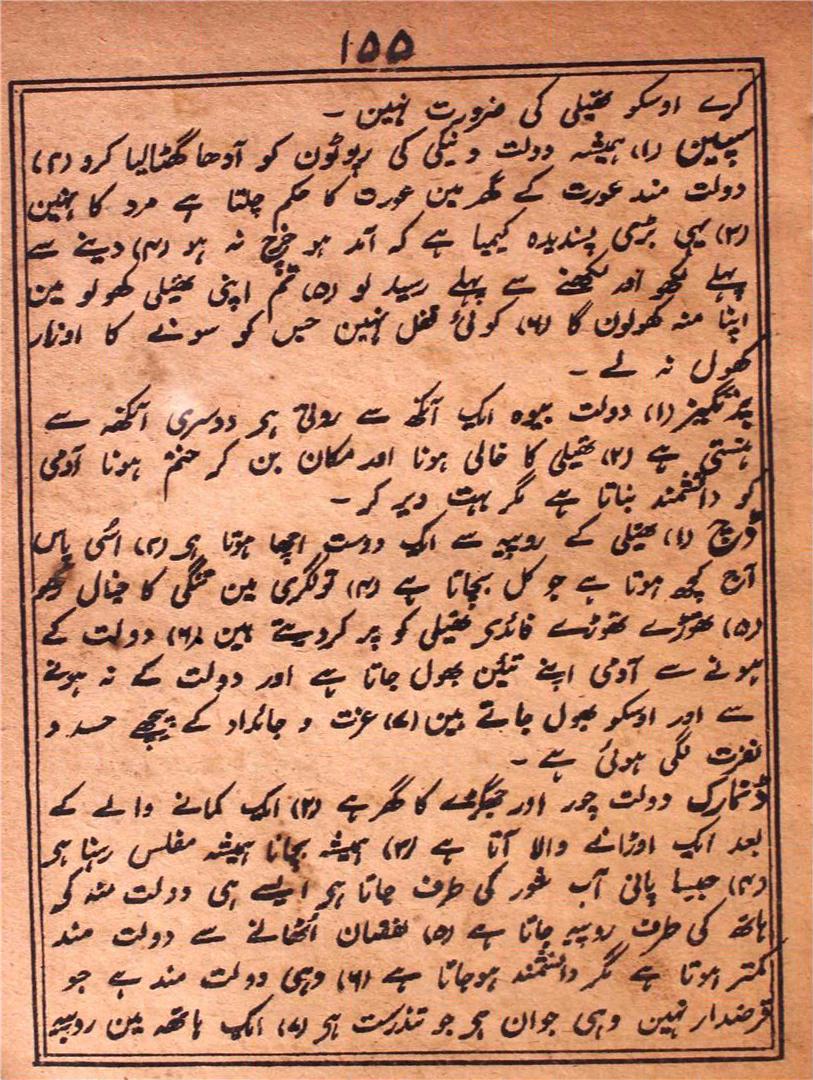 ۱۵۵
کرے اوسکو تھیلی کی ضرورت نہین ۔
سپین (۱) ہمیشہ دولت و نیکی کی رپوٹون کو آدھا گھٹا لیا کرو (۲)
دولت مند عورت کے گھر مین عورت کا حکم چلتا ہے مرد کا نہین
(۳) یہی بڑی پسندیدہ کیمیا ہے کہ آمد ہو خرچ نہ ہو (۴) دینے سے
پہلے لکھو اور لکھنے سے پہلے رسید لو (۵) تم اپنی تھیلی کھولو مین
اپنا منہ کھولون گا (۶) کوئی قفل نہین جس کو سونے کا اوزار
کھول نہ لے ۔
پرتگیز (۱) دولت بیوہ ایک آنکھ سے روتی ہی دوسری آنکھ سے
ہنستی ہے (۲) تھیلی کا خالی ہونا اور مکان بن کر ختم ہونا آدمی
کو دانشمند بناتا ہے مگر بہت دیر کر ۔
ڈچ (۱) تھیلی کے روپیہ سے ایک دوست اچھا ہوتا ہی (۲) اسی پاس
آج کچھ ہوتا ہے جو کل بچاتا ہے (۳) تونگری مین تنگی کا خیال رکھو
(۵) تھوڑے تھوڑے فائدی تھیلی کو پر کردیتے ہین (۶) دولت کے
ہونے سے آدمی اپنے تئین بھول جاتا ہے اور دولت کے نہ ہونے
سے اور اوسکو بھول جاتے ہین (۷) عزت و جائداد کے پیچھے حسد و
نفرت لگی ہوئی ہے ۔
ڈنمارک دولت چور اور جھگڑے کا گھر ہے (۲) ایک کمانے والے کے
بعد ایک اوڑانے والا آتا ہے (۳) ہمیشہ بچانا ہمیشہ مفلس رہنا ہی
(۴) جیسا پانی آب شور کی طرف جاتا ہی ایسے ہی دولت مند کے
ہاتھ کی طرف روپیہ جاتا ہے (۵) نقصان اٹھانے سے دولت مند
کمتر ہوتا ہے مگر دانشمند ہوجاتا ہے (۶) وہی دولت مند ہے جو
قرضدار نہین وہی جوان ہی جو تندرست ہی (۷) ایک ہاتھ مین روپیہ